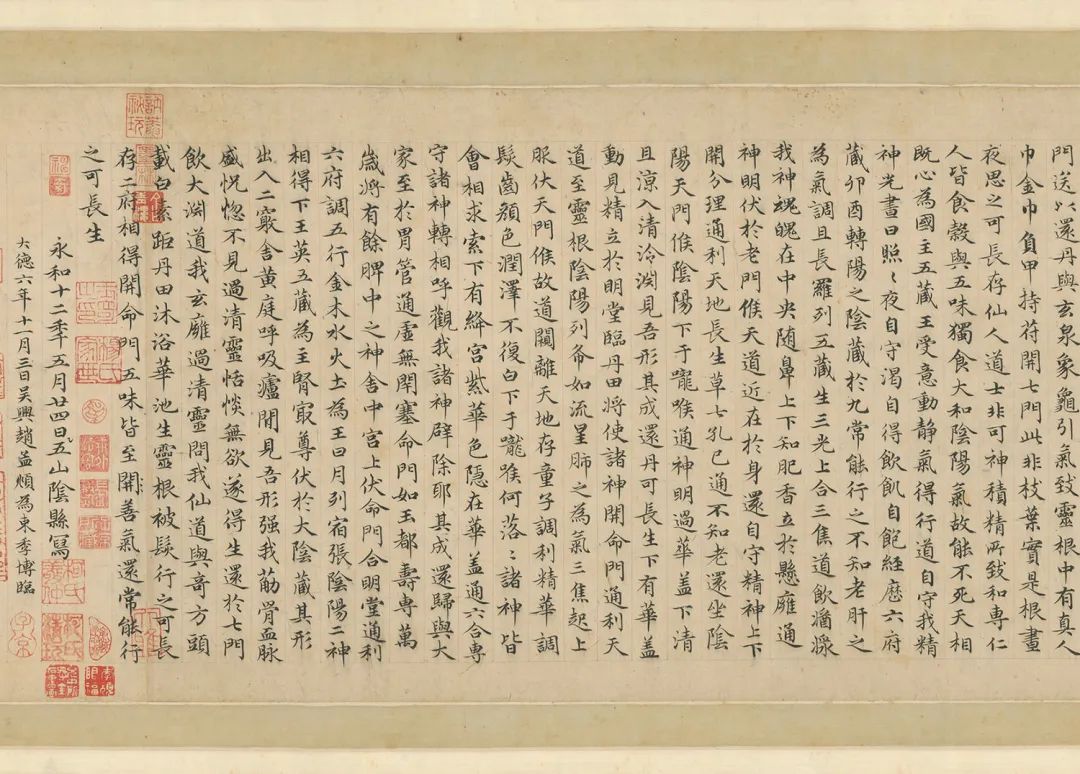 門送以還丹與玄泉象龜引氣致靈根中有真人
巾金巾負甲持符開七門此非枝葉實是根晝
夜思之可長存仙人道士非可神積精所致和專仁
人皆食穀與五味獨食大和陰陽氣故能不死天相
既心為國主五藏王受意動靜氣得行道自守我精
神光晝日照〻夜自守渴自得飲飢自飽經歷六府
藏卯酉轉陽之陰藏於九常能行之不知老肝之
為氣調且長羅列五藏生三光上合三焦道飲漿
我神魂魄在中央随鼻上下知肥香立於懸廱通
神明伏於老門候天道近在於身還自守精神上下
開分理通利天地長生草七孔已通不知老還坐陰
陽天門候陰陽下于嚨喉通神明過華盖下清
且涼入清泠淵見吾形其成還丹可長生下有華盖
動見精立於明堂臨丹田將使諸神開命門通利天
道至靈根陰陽列布如流星肺之為氣三焦起上
服伏天門候故道闚離天地存童子調利精華調
髮齒顏色潤澤不復白下于嚨喉何落〻諸神皆
會相求索下有絳宮紫華色隱在華盖通六合專
守諸神轉相呼觀我諸神辟除耶其成還歸與大
家至於胃管通虛無閉塞命門如玉都壽專萬
歲將有餘脾中之神舍中宮上伏命門合明堂通利
六府調五行金木水火土為王日月列宿張陰陽二神
相得下玉英五藏為主腎冣尊伏於大陰藏其形
出入二竅舍黃庭呼吸廬間見吾形强我茐骨血脉
盛怳惚不見過清靈恬惔無欲遂得生還於七門
飲大淵道我玄廱過清靈問我仙道與奇方頭
載白素距丹田沐浴華池生靈根被髮行之可長
存二府相得開命門五味皆至開善氣還常能行
之可長生
永和十二季五月廿四日五山陰縣寫
大德六年十一月三日吳興趙孟頫為東季博臨